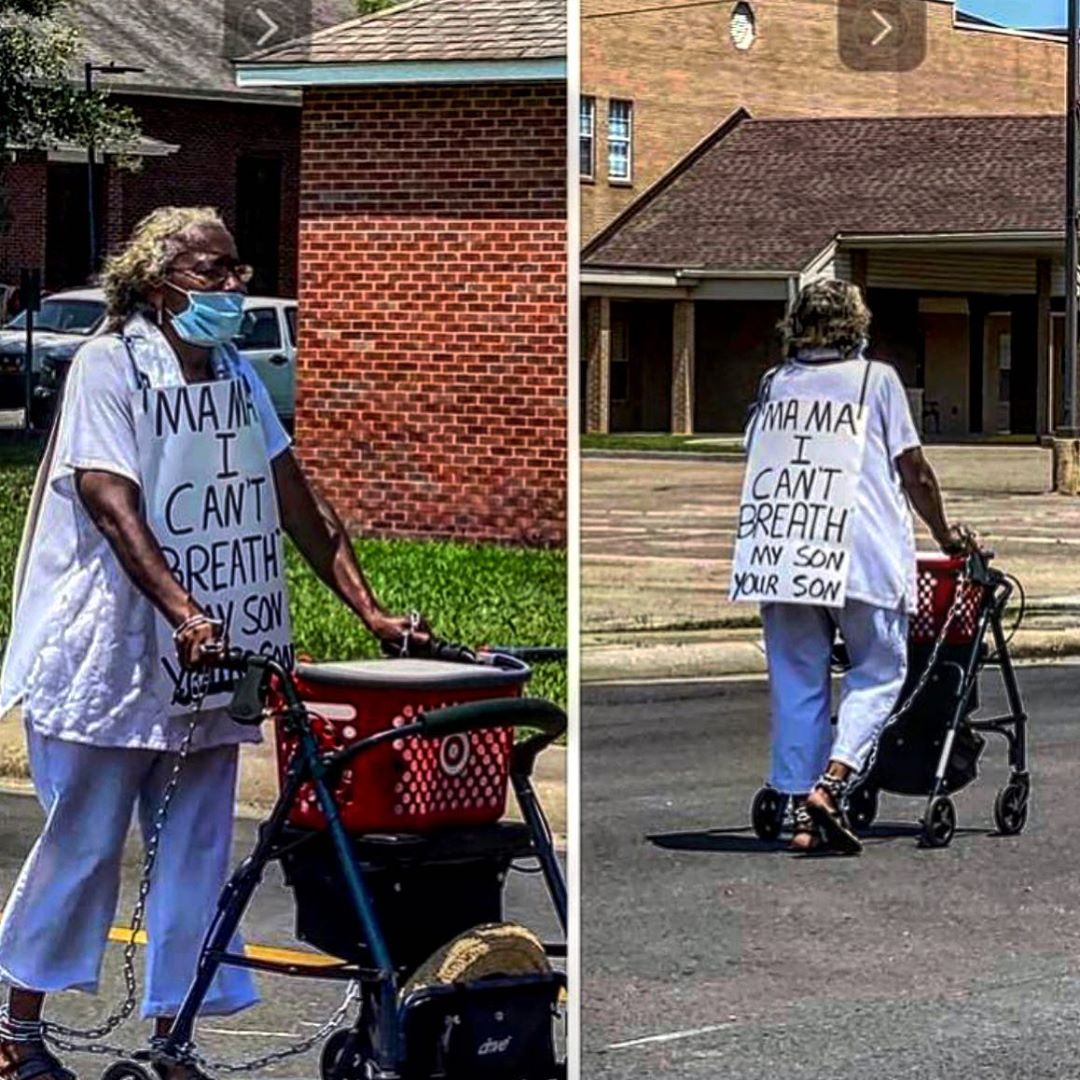 "MA MA
I
CAN'T
BREATH"
MY SON
YOUR SON
drive
"MA MA"
I
CAN'T
BREATH"
MY SON
YOUR SON